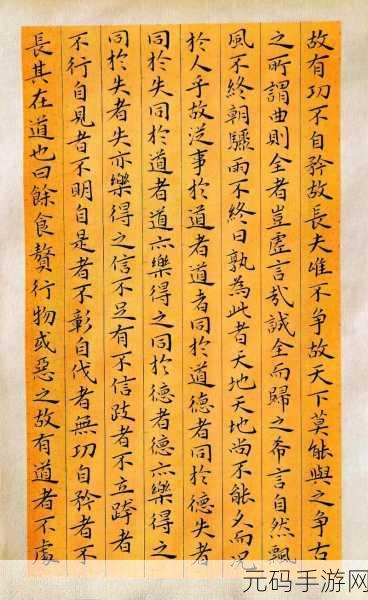 故有功不自矜故長夫唯不争故天下莫能與之争古
之所謂曲則全者豈虛言哉誠全而歸之希言自然飄
風不終朝驟雨不終日孰為此者天地天地尚不能久而況
於人乎故從事於道者道者同於道德者同於德失者
同於失同於道者道亦樂得之同於德者德亦樂得之
同於失者失亦樂得之信不足有不信跂者不立跨者
不行自見者不明自是者不彰自伐者無功自矜者不
長其在道也曰餘食贅行物或惡之故有道者不處
元码手游网